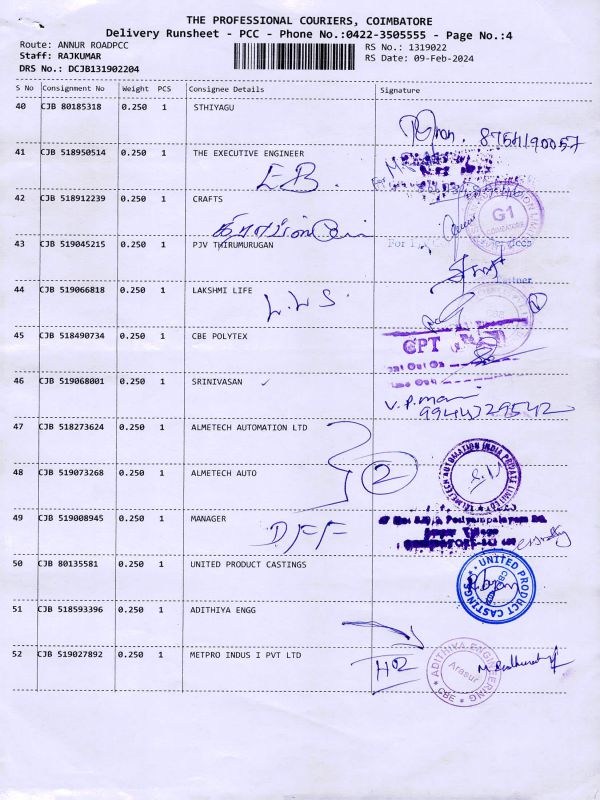 THE PROFESSIONAL COURIERS, COIMBATORE
Delivery Runsheet - PCC - Phone No.:0422-3505555 - Page No.:4
Route: ANNUR ROADPCC RS No.: 1319022
Staff: RAJKUMAR RS Date: 09-Feb-2024
DRS No.: DCJB131902204
S No Consignment No Weight PCS Consignee Details Signature
40 CJB 80185318 0.250 1 STHIYAGU
41 CJB 518950514 0.250 1 THE EXECUTIVE ENGINEER
EB.
42 CJB 518912239 0.250 1 CRAFTS
G1
COIMBATORE
43 CJB 519045215 0.250 1 PJV THIRUMURUGAN
44 CJB 519066818 0.250 1 LAKSHMI LIFE
L.L.S.
45 CJB 518490734 0.250 1 CBE POLYTEX
CPT
46 CJB 519068001 0.250 1 SRINIVASAN ✓
V.P.mani
9944729542
47 CJB 518273624 0.250 1 ALMETECH AUTOMATION LTD
2
ALMETECH AUTOMATION INDIA PRIVATE LIMITED
48 CJB 519073268 0.250 1 ALMETECH AUTO
49 CJB 519008945 0.250 1 MANAGER
DFF
50 CJB 80135581 0.250 1 UNITED PRODUCT CASTINGS
UNITED PRODUCT CASTINGS
51 CJB 518593396 0.250 1 ADITHIYA ENGG
52 CJB 519027892 0.250 1 METPRO INDUS I PVT LTD
H2
ADITHIYA ENGINEERING
Arasur
CBE